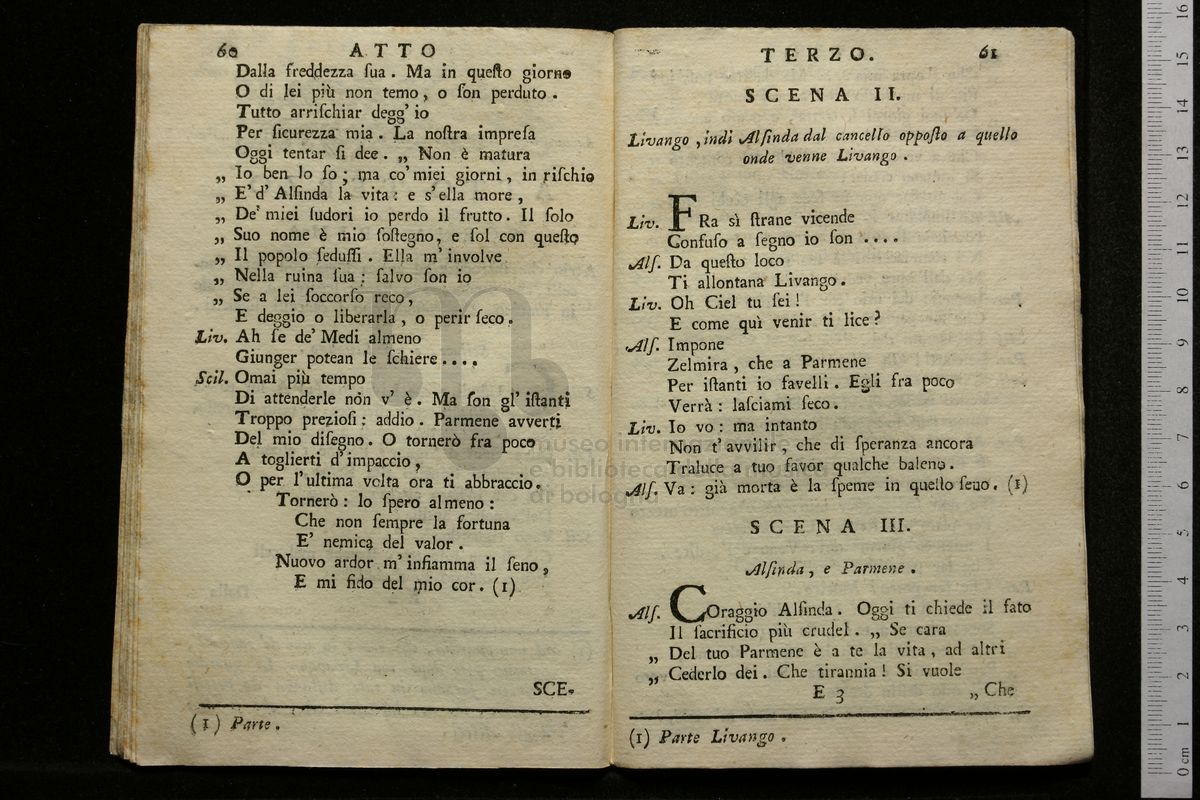 60 ATTO
Dalla freddezza ſua . Ma in queſto giorno
O di lei più non temo , o ſon perduto .
Tutto arriſchiar degg' io
Per ſicurezza mia . La noſtra impreſa
Oggi tentar ſi dee . „ Non è matura
„ Io ben lo ſo ; ma co' miei giorni , in riſchio
„ E' d' Alſinda la vita : e s' ella more ,
„ De' miei ſudori io perdo il frutto . Il ſolo
„ Suo nome è mio ſoſtegno, e ſol con queſto
„ Il popolo ſeduſſi . Ella m' involve
„ Nella ruina ſua : ſalvo ſon io
„ Se a lei ſoccorſo reco ,
E deggio o liberarla , o perir ſeco .
Liv. Ah ſe de' Medi almeno
Giunger potean le ſchiere ....
Scil. Omai più tempo
Di attenderle non v' è . Ma ſon gl' iſtanti
Troppo prezioſi : addio . Parmene avverti
Del mio diſegno . O tornerò fra poco
A toglierti d' impaccio ,
O per l' ultima volta ora ti abbraccio .
Tornerò : lo ſpero almeno :
Che non ſempre la fortuna
E' nemica del valor .
Nuovo ardor m' infiamma il ſeno ,
E mi fido del mio cor . (1)
SCE-
(1) Parte .
TERZO. 61
SCENA II.
Livango , indi Alſinda dal cancello oppoſto a quello
onde venne Livango .
Liv. FRa sì ſtrane vicende
Confuſo a ſegno io ſon ....
Alſ. Da queſto loco
Ti allontana Livango .
Liv. Oh Ciel tu ſei !
E come quì venir ti lice ?
Alſ. Impone
Zelmira , che a Parmene
Per iſtanti io favelli . Egli fra poco
Verrà : laſciami ſeco .
Liv. Io vo : ma intanto
Non t' avvilir , che di ſperanza ancora
Traluce a tuo favor qualche baleno .
Alſ. Va : già morta è la ſpeme in queſto ſeno . (1)
SCENA III.
Alſinda , e Parmene .
Alſ. COraggio Alſinda . Oggi ti chiede il fato
Il ſacrificio più crudel . „ Se cara
„ Del tuo Parmene è a te la vita , ad altri
„ Cederlo dei . Che tirannia ! Si vuole
E 3 „ Che
(1) Parte Livango .
museo internazionale
e biblioteca della musica
di bologna
0 cm 1 2 3 4 5 6 7 8 9 10 11 12 13 14 15 16